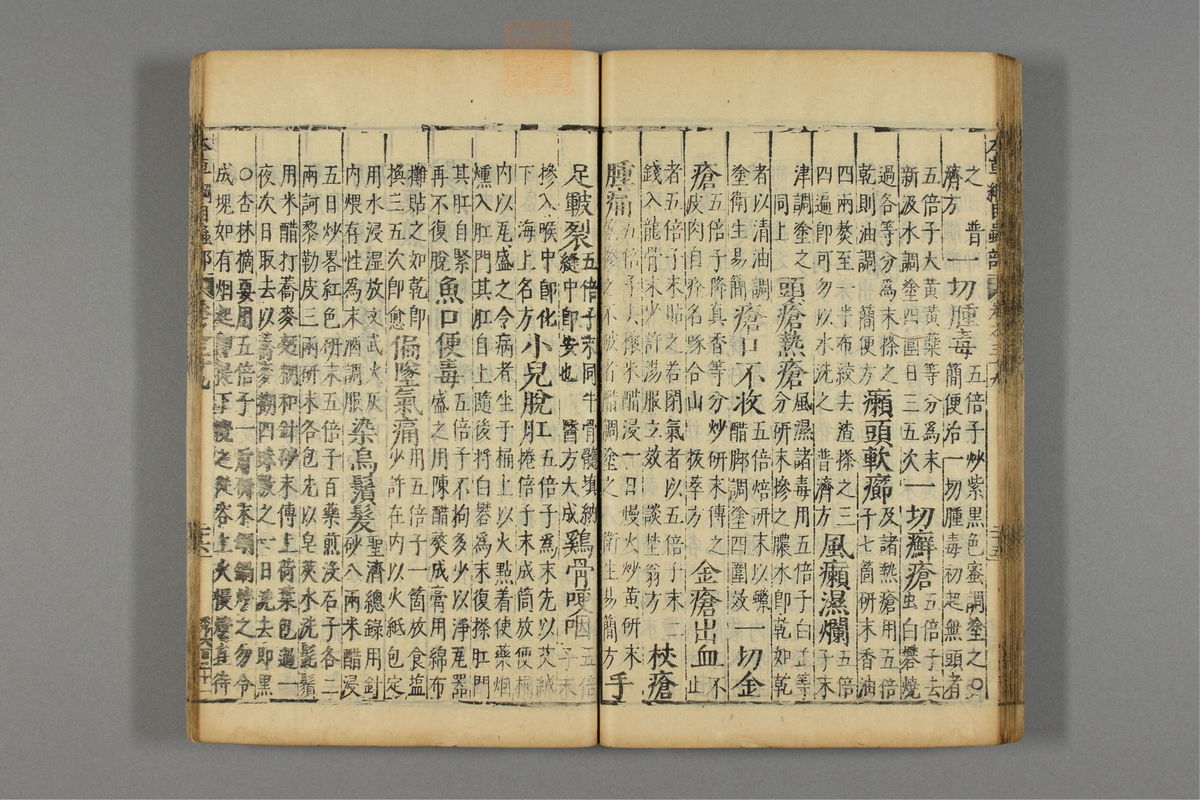 本草綱目蟲部
之 普
濟方
一切腫毒
五倍子炒紫黑色蜜調塗之○
簡便治一切腫毒初起無頭者
五倍子大黃黃蘗等分為末
新汲水調塗四圍日三五次
一切癬瘡
五倍子去
虫白礬燒
過各等分為末搽之
乾則油調 簡便方
癩頭軟癤
及諸熱瘡用五倍
子七箇研末香油
四兩熬至一半布絞去渣搽之三
四遍即可勿以水洗之 普濟方
風癩濕爛
五倍
子末
津調塗之
同上
頭瘡熱瘡
風濕諸毒用五倍子白芷等
分研末摻之膿水即乾如乾
者以清油調
塗衛生易簡
瘡口不收
五倍焙研末以蠟
醋脚調塗四圍效
一切金
瘡
五倍子降真香等分炒研末傅之
皮肉自痊名啄合山 拔萃方
金瘡出血
不
止
者五倍子末貼之若閉氣者以五倍子末二
錢入龍骨末少許湯服立效 談埜翁方
杖瘡
腫痛
五倍子去穰米醋浸一日慢火炒黃研末
之不破者醋調塗之 衛生易簡方
手
足皸裂
五倍子末同牛骨髓填納
縫中即安也 醫方大成
雞骨哽咽
五倍
子末
摻入喉中即化
下 海上名方
小兒脫肛
五倍子為末先以艾絨
捲倍子末成筒放便桶
內以瓦盛之令病者坐于桶上以火點着使藥烟
燻入肛門其肛自上隨後將白礬為末復搽肛門
其肛自緊
再不復脫
魚口便毒
五倍子不拘多少以淨瓦器
盛之用陳醋熬成膏用綿布
攤貼之如乾即
換三五次即愈
偏墜氣痛
用五倍子一箇放食盐
少許在內以火紙包定
用水浸湿放文武火灰
內煨存性為末酒調服
染烏鬚髮
聖濟總錄用針
砂八兩米醋浸
五日炒畧紅色研末五倍子百藥煎沒石子各二
兩訶黎勒皮三兩研末各包先以皂莢水洗髭鬚
用米醋打蕎麥麫調和針砂末傅上荷葉包過一
夜次日取去以蕎麥糊四味敷之一日洗去即黑
○杏林摘要用五倍子一斤研末銅鍋炒之勿令
成塊如有烟起即提下攪之從容上火慢炒直待
本草綱目蟲部